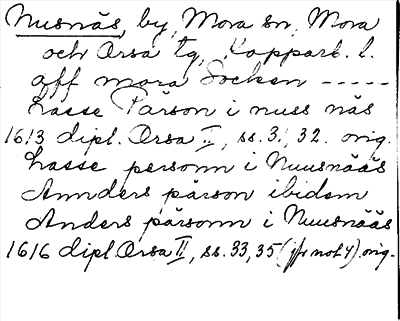 Nusnäs, by, Mora sn, Mora
och Orsa tg, Kopparb. l.
aff mora Socken -----
Lasse Pärson i nuss näs
1613 dipl. Orsa II, ss. 3, 32. orig.
Lasse personn i Nuusnääs
Annders pärson ibidem
Anders pärsonn i Nuusnääs
1616 dipl. Orsa II, ss. 33, 35 (jfr not 4). orig.